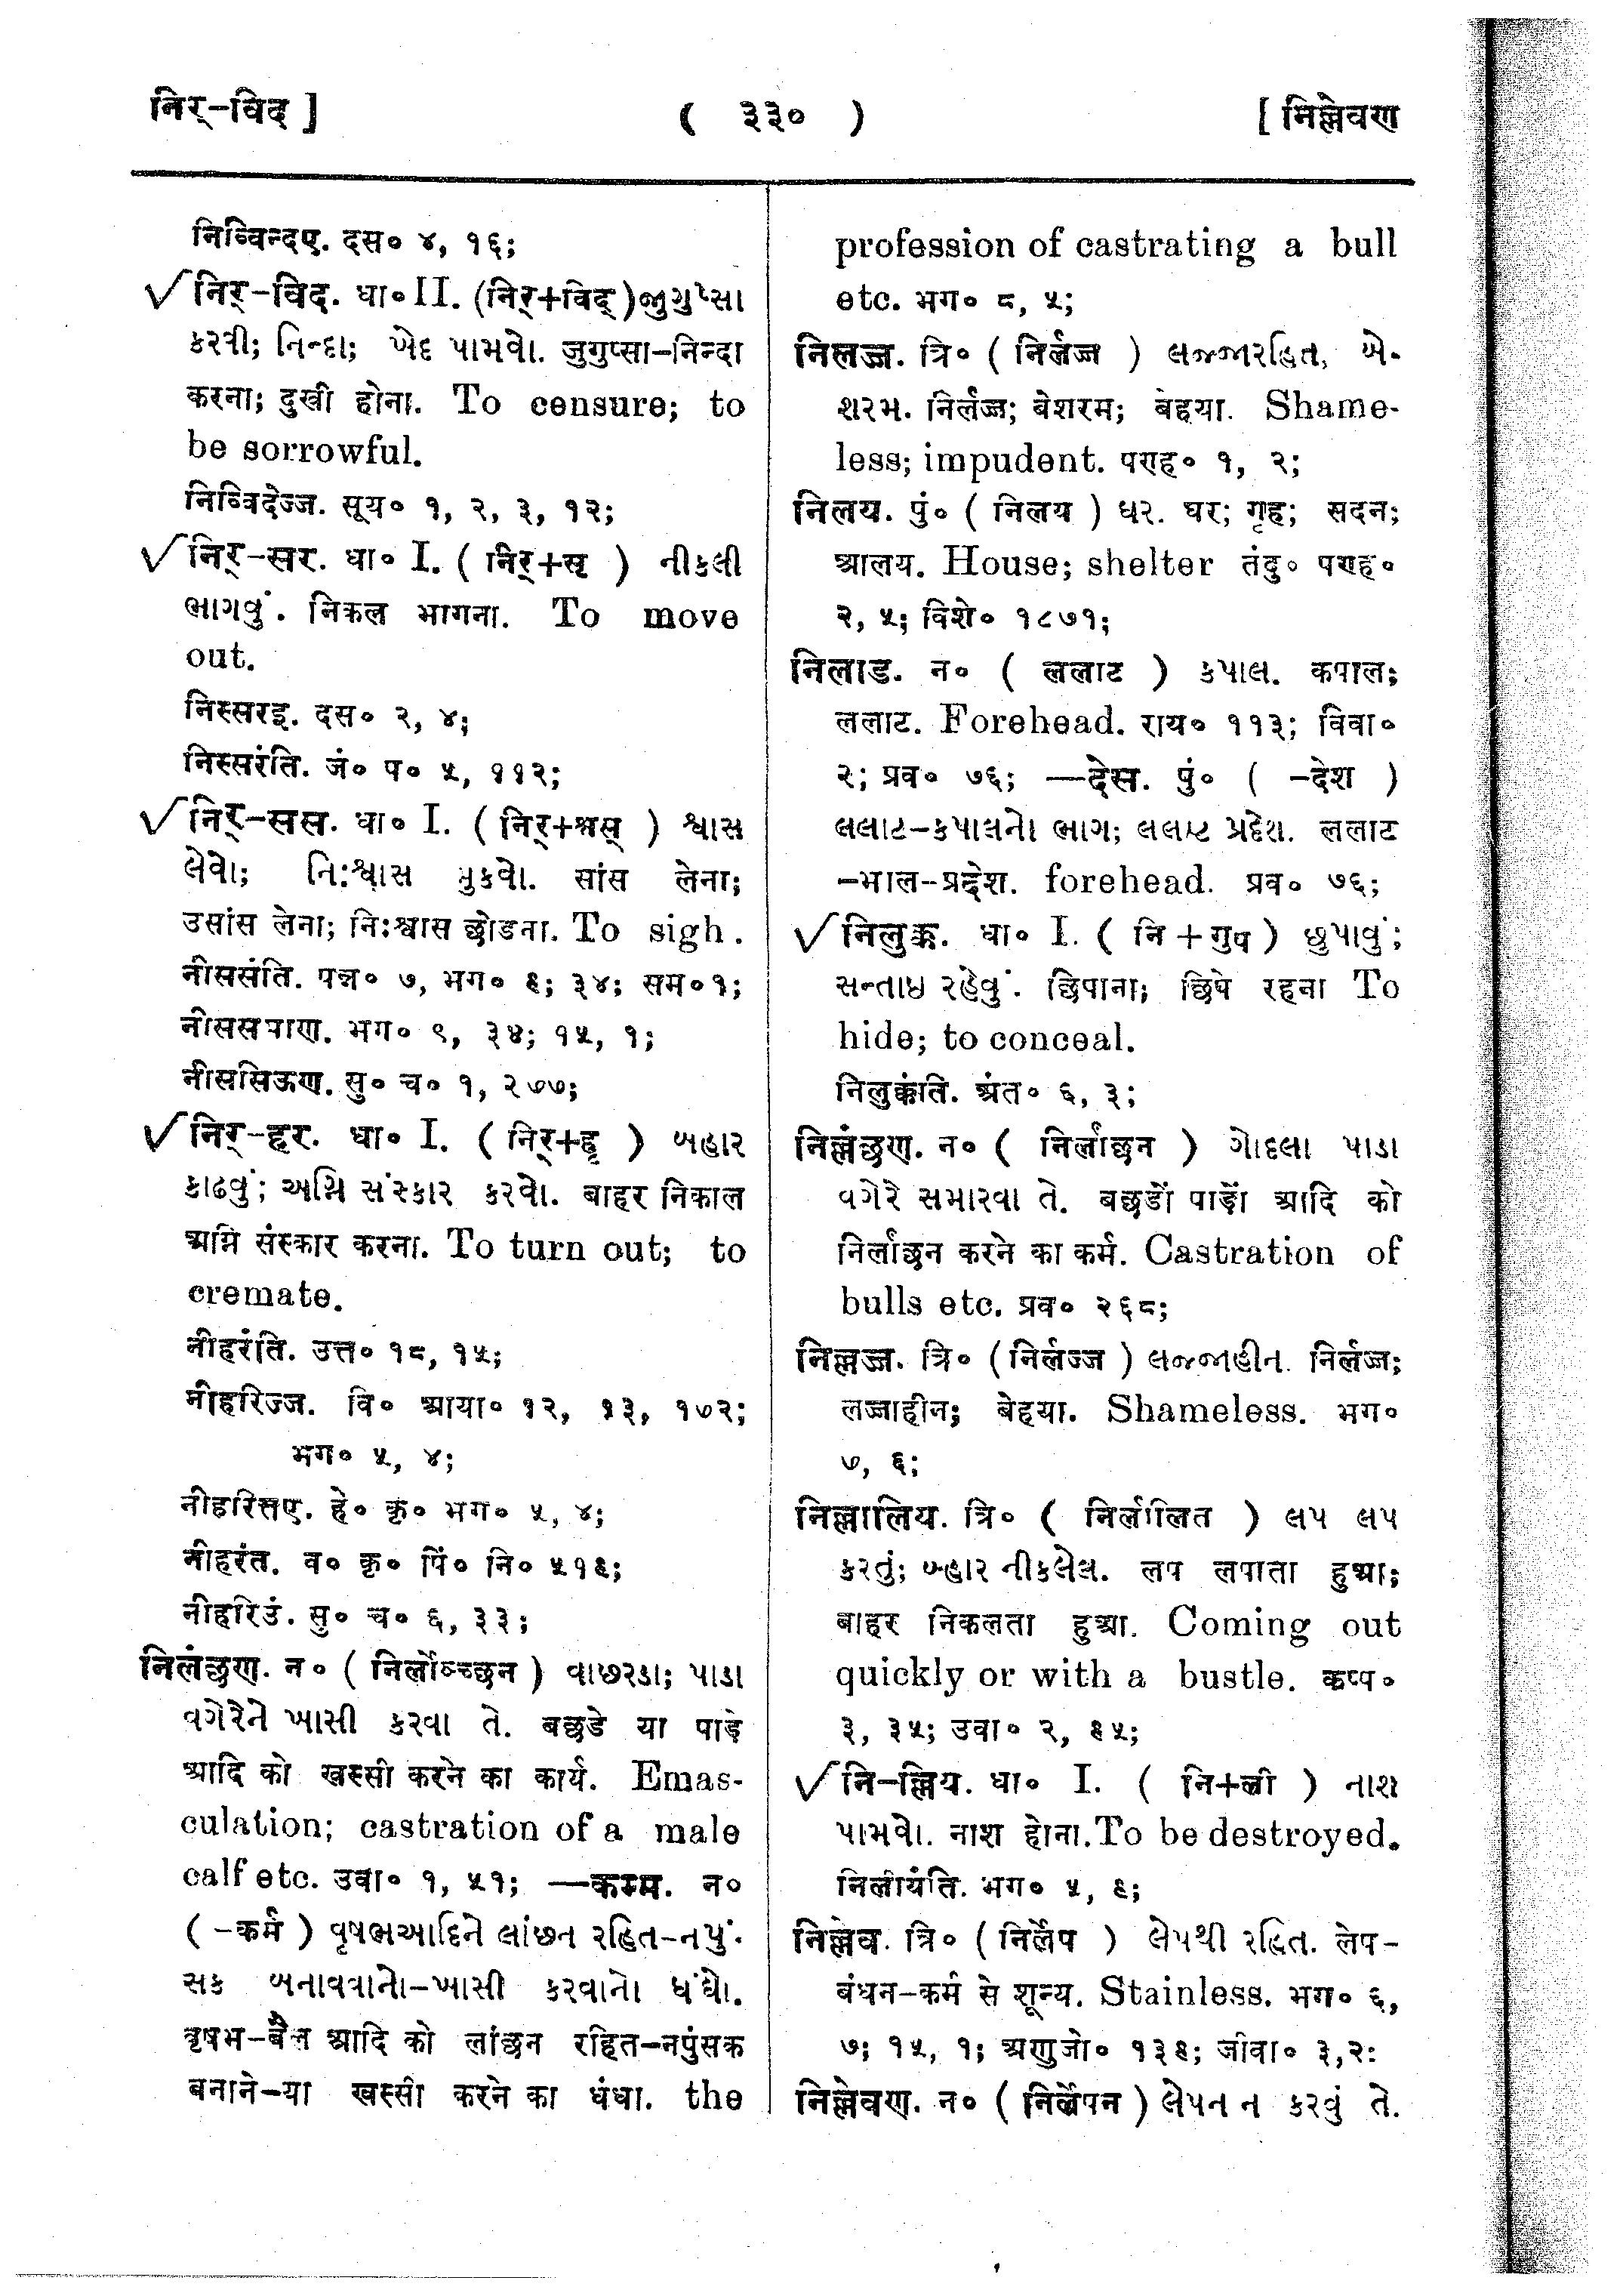 निर्-विद ]
( ३३० )
[ निल्लेवण
निव्विन्दए. दस० ४, १६;
√ निर्-विद. धा० II. (निर्+विद्) જુગુપ્સા
કરવી; નિન્દા; ખેદ પામવો. जुगुप्सा-निन्दा
करना; दुखी होना. To censure; to
be sorrowful.
निव्विदेज्ज. सूय० १, २, ३, १२;
√ निर्-सर. धा० I. ( निर्+सृ ) નીકલી
ભાગવું. निकल भागना. To move
out.
निस्सरइ. दस० २, ४;
निस्सरंति. जं० प० ५, ११२;
√ निर्-सस. धा० I. ( निर्+श्वस् ) શ્વાસ
લેવો; નિ:શ્વાસ મુકવો. सांस लेना;
उसांस लेना; नि:श्वास छोडना. To sigh.
नीससंति. पन्न० ७, भग० ६; ३४; सम० १;
नीससमाण. भग० ९, ३४; १५, १;
नीससिऊण. सु० च० १, २७७;
√ निर्-हर. धा० I. ( निर्+हृ ) બહાર
કાઢવું; અગ્નિ સંસ્કાર કરવો. बाहर निकाल
अग्नि संस्कार करना. To turn out; to
cremate.
नीहरंति. उत्त० १८, १५;
नीहरिज्ज. वि० आया० १२, १३, १७२;
भग० ५, ४;
नीहरित्तए. हे० कृ० भग० ५, ४;
नीहरंत. व० कृ० पिं० नि० ५१६;
नीहरिउं. सु० च० ६, ३३;
निलंछण. न० ( निर्लाञ्च्छन ) વાછરડા; પાડા
વગેરેને ખાસી કરવા તે. बछडे या पाड़े
आदि को खस्सी करने का कार्य. Emas-
culation; castration of a male
calf etc. उवा० १, ५१; —कम्म. न०
( -कर्म ) વૃષભઆદિને લાંછન રહિત-નપું-
સક બનાવવાનો-ખાસી કરવાનો ધંધો.
वृषभ-बैल आदि को लांछन रहित-नपुंसक
बनाने-या खस्सी करने का धंधा. the
profession of castrating a bull
etc. भग० ८, ५;
निलज्ज. त्रि० ( निर्लज्ज ) લજ્જારહિત, બે-
શરમ. निर्लज्ज; बेशरम; बेहया. Shame-
less; impudent. पराह० १, २;
निलय. पुं० ( निलय ) ઘર. घर; गृह; सदन;
आलय. House; shelter तंदु० पराह०
२, ५; विशे० १८७१;
निलाड. न० ( ललाट ) કપાલ. कपाल;
ललाट. Forehead. राय० ११३; विवा०
२; प्रव० ७६; —देस. पुं० ( -देश )
લલાટ-કપાલનો ભાગ; લલાટ પ્રદેશ. ललाट
-भाल-प्रदेश. forehead. प्रव० ७६;
√ निलुक्क. धा० I. ( नि + गुप ) છુપાવું;
સન્તાઇ રહેવું. छिपाना; छिपे रहना To
hide; to conceal.
निलुक्कंति. अंत० ६, ३;
निल्लंछण. न० ( निर्लांछन ) ગોદલા પાડા
વગેરે સમારવા તે. बछडों पाड़ों आदि को
निर्लांछन करने का कर्म. Castration of
bulls etc. प्रव० २६८;
निल्लज्ज. त्रि० (निर्लज्ज ) લજ્જાહીન. निर्लज्ज;
लज्जाहीन; बेहया. Shameless. भग०
७, ६;
निल्लालिय. त्रि० ( निर्लालित ) લપ લપ
કરતું; બ્હાર નીકલેલ. लप लपाता हुआ;
बाहर निकलता हुआ. Coming out
quickly or with a bustle. कप्प०
३, ३५; उवा० २, ६५;
√ नि-ल्लिय. धा० I. ( नि+ली ) નાશ
પામવો. नाश होना. To be destroyed.
निलीयंति. भग० ५, ६;
निल्लेव. त्रि० ( निर्लेप ) લેપથી રહિત. लेप-
बंधन-कर्म से शून्य. Stainless. भग० ६,
७; १५, १; अणुजो० १३६; जीवा० ३,२:
निल्लेवण. न० ( निर्लेपन ) લેપન ન કરવું તે.